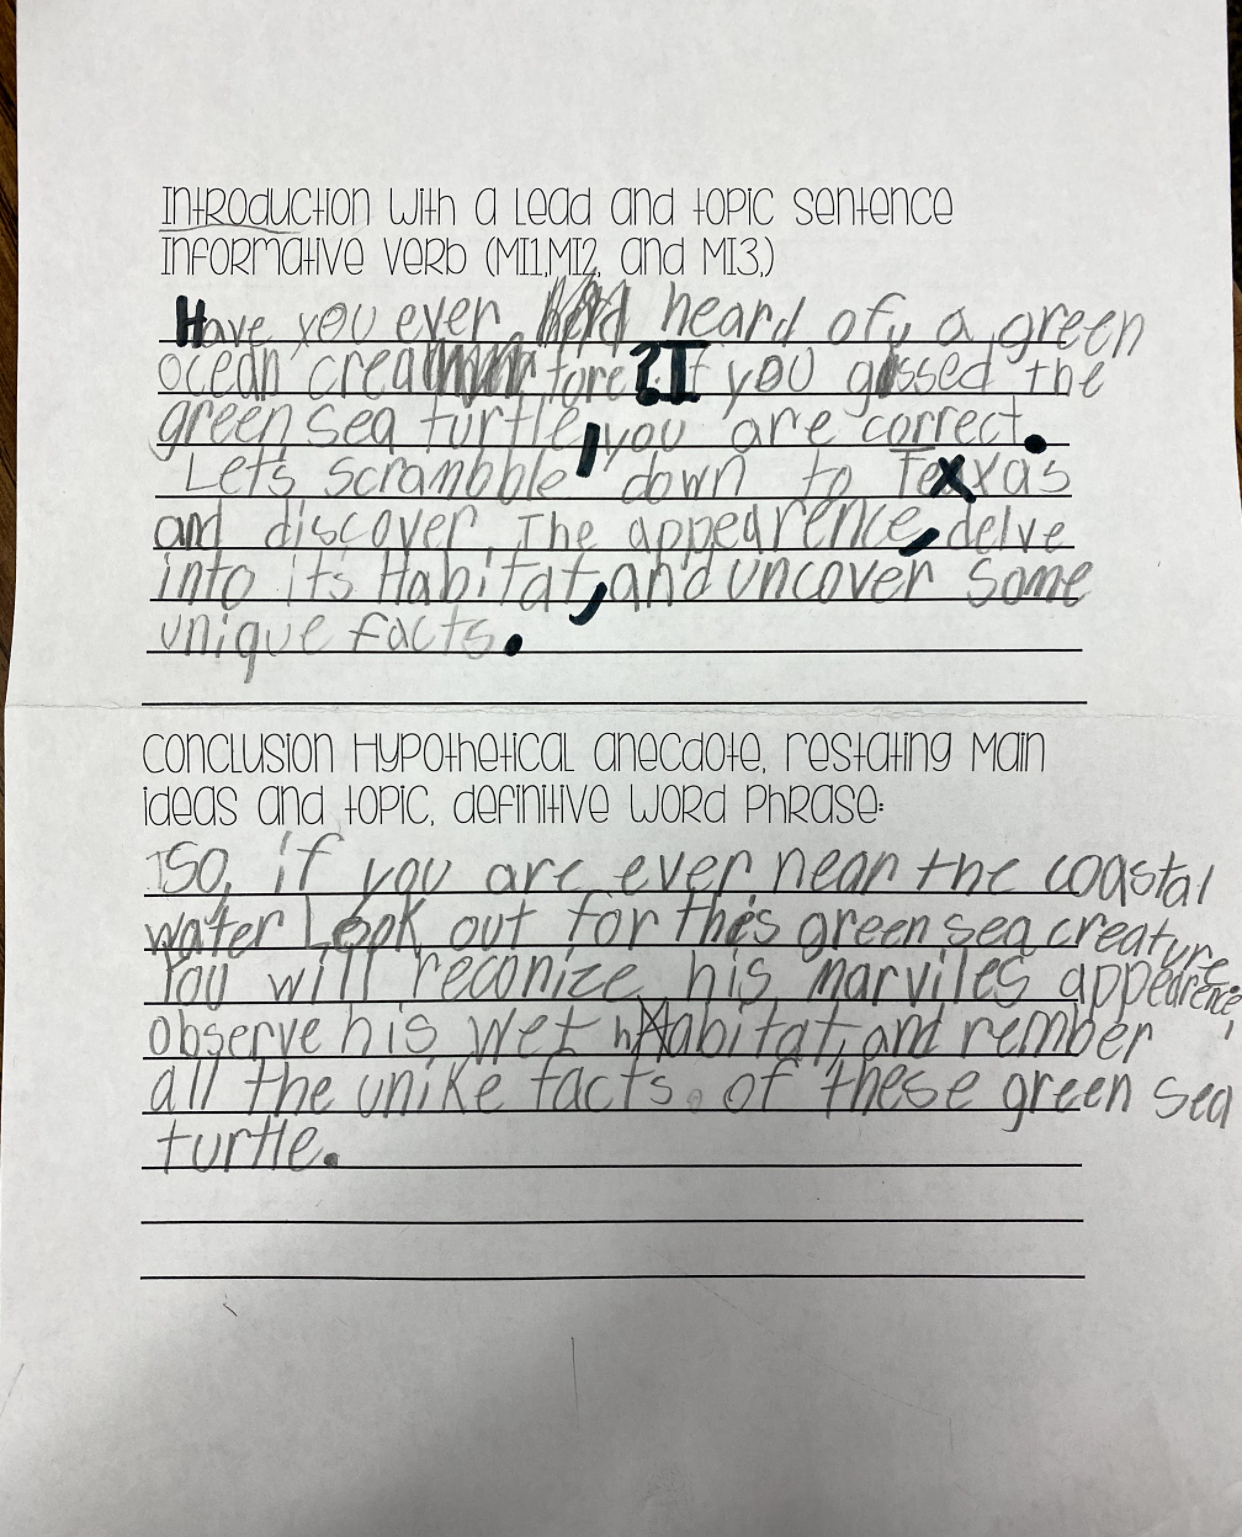 Introduction with a Lead and topic sentence
Informative verb (MI1,MI2, and MI3,)
Have you ever heard of a green
ocean creature?If you gissed the
green sea turtle, you are correct.
Let's scrambble down to Texas
and discover. The appearence, delve
into its Habitat, and uncover some
unique facts.
Conclusion Hypothetical anecdote, restating Main
ideas and topic, definitive word phrase:
So, if you are ever near the coastal
water Look out for this green sea creature
You will reconize his marviles appearence,
observe his wet habitat, and rember
all the unike facts. of these green sea
turtle.